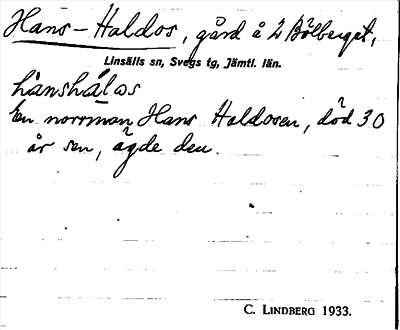 Hans-Haldos, gård å L Bölberget,
Linsälls sn, Svegs tg, Jämtl. län.
hànshálos
En norrman Hans Haldosen, död 30
år sen, ägde den.
C. LINDBERG 1933.